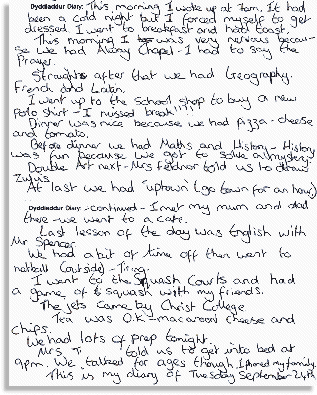 Dyddiaddur Diary: This morning I woke up at 7am. It had
been a cold night but I forced myself to get
dressed. I went to breakfast and had toast.
This morning I was very nervous becau-
se we had Abbey Chapel - I had to say the
Prayer.
Straight after that we had Geography,
French and Latin.
I went up to the school shop to buy a new
Polo shirt - I missed break!!!
Dinner was nice because we had pizza - cheese
and tomato.
Before dinner we had Maths and History - History
was fun because we got to solve a mystery.
Double Art next - Mrs told us to draw
zulus
At last we had uptown (go town for an hour)
Dyddiaddur Diary: - continued - I met my mum and dad
there - we went to a cafe.
Last lesson of the day was English with
Mr Spencer
We had a bit of time off then went to
netball (outside) - Tiring.
I went to the Squash Courts and had
a game of squash with my friends.
The jets came by Christ College
Tea was O.K - macaroni cheese and
chips.
We had lots of prep tonight.
Mrs T told us to get into bed at
9pm. We talked for ages though. I phoned my family.
This is my diary of Tuesday September 24th